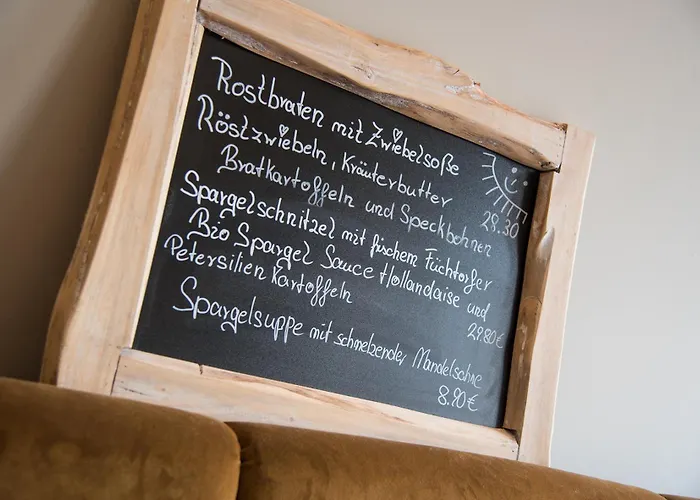 Rostbraten mit Zwiebelsoße
Röstzwiebeln, Kräuterbutter
Bratkartoffeln und Speckbohnen
28.30
Spargelschnitzel mit fischem Füchtorfer
Bio Spargel Sauce Hollandaise und
Petersilien Kartoffeln
29.80€
Spargelsuppe mit schmelzender Mandelsahne
8.90€